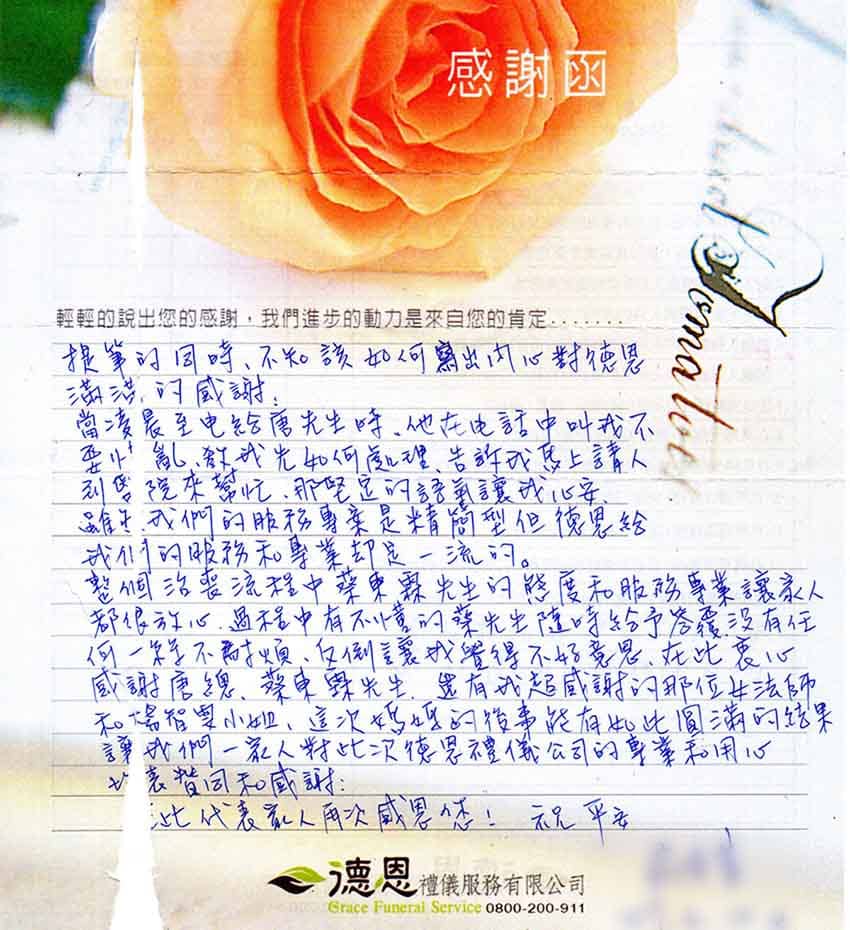 感謝函
輕輕的說出您的感謝，我們進步的動力是來自您的肯定........
提筆的同時、不知該如何寫出內心對德恩
滿滿的感謝：
當凌晨至电給唐先生時、他在电話中叫我不
亂、教我先如何處理、告訴我馬上請人
到醫院來幫忙、那堅定的語氣讓我心安、
我們的服務專案是精簡型但德恩給
我們的服務和專業却是一流的。
整個治喪流程中蔡東霖先生的態度和服務專業讓家人
都很放心、過程中有不懂的蔡先生隨時給予答覆、沒有任
何一絲不耐煩、反倒讓我覺得不好意思、在此衷心
感謝唐總、蔡東霖先生、還有我超感謝的那位女法師
和楊智雯小姐、這次媽媽的後事能有如此圓滿的結果
讓我們一家人對此次德恩禮儀公司的專業和用心
表贊同和感謝：
此代表家人再次感恩您！ 祝 平安
德恩禮儀服務有限公司
Grace Funeral Service 0800-200-911